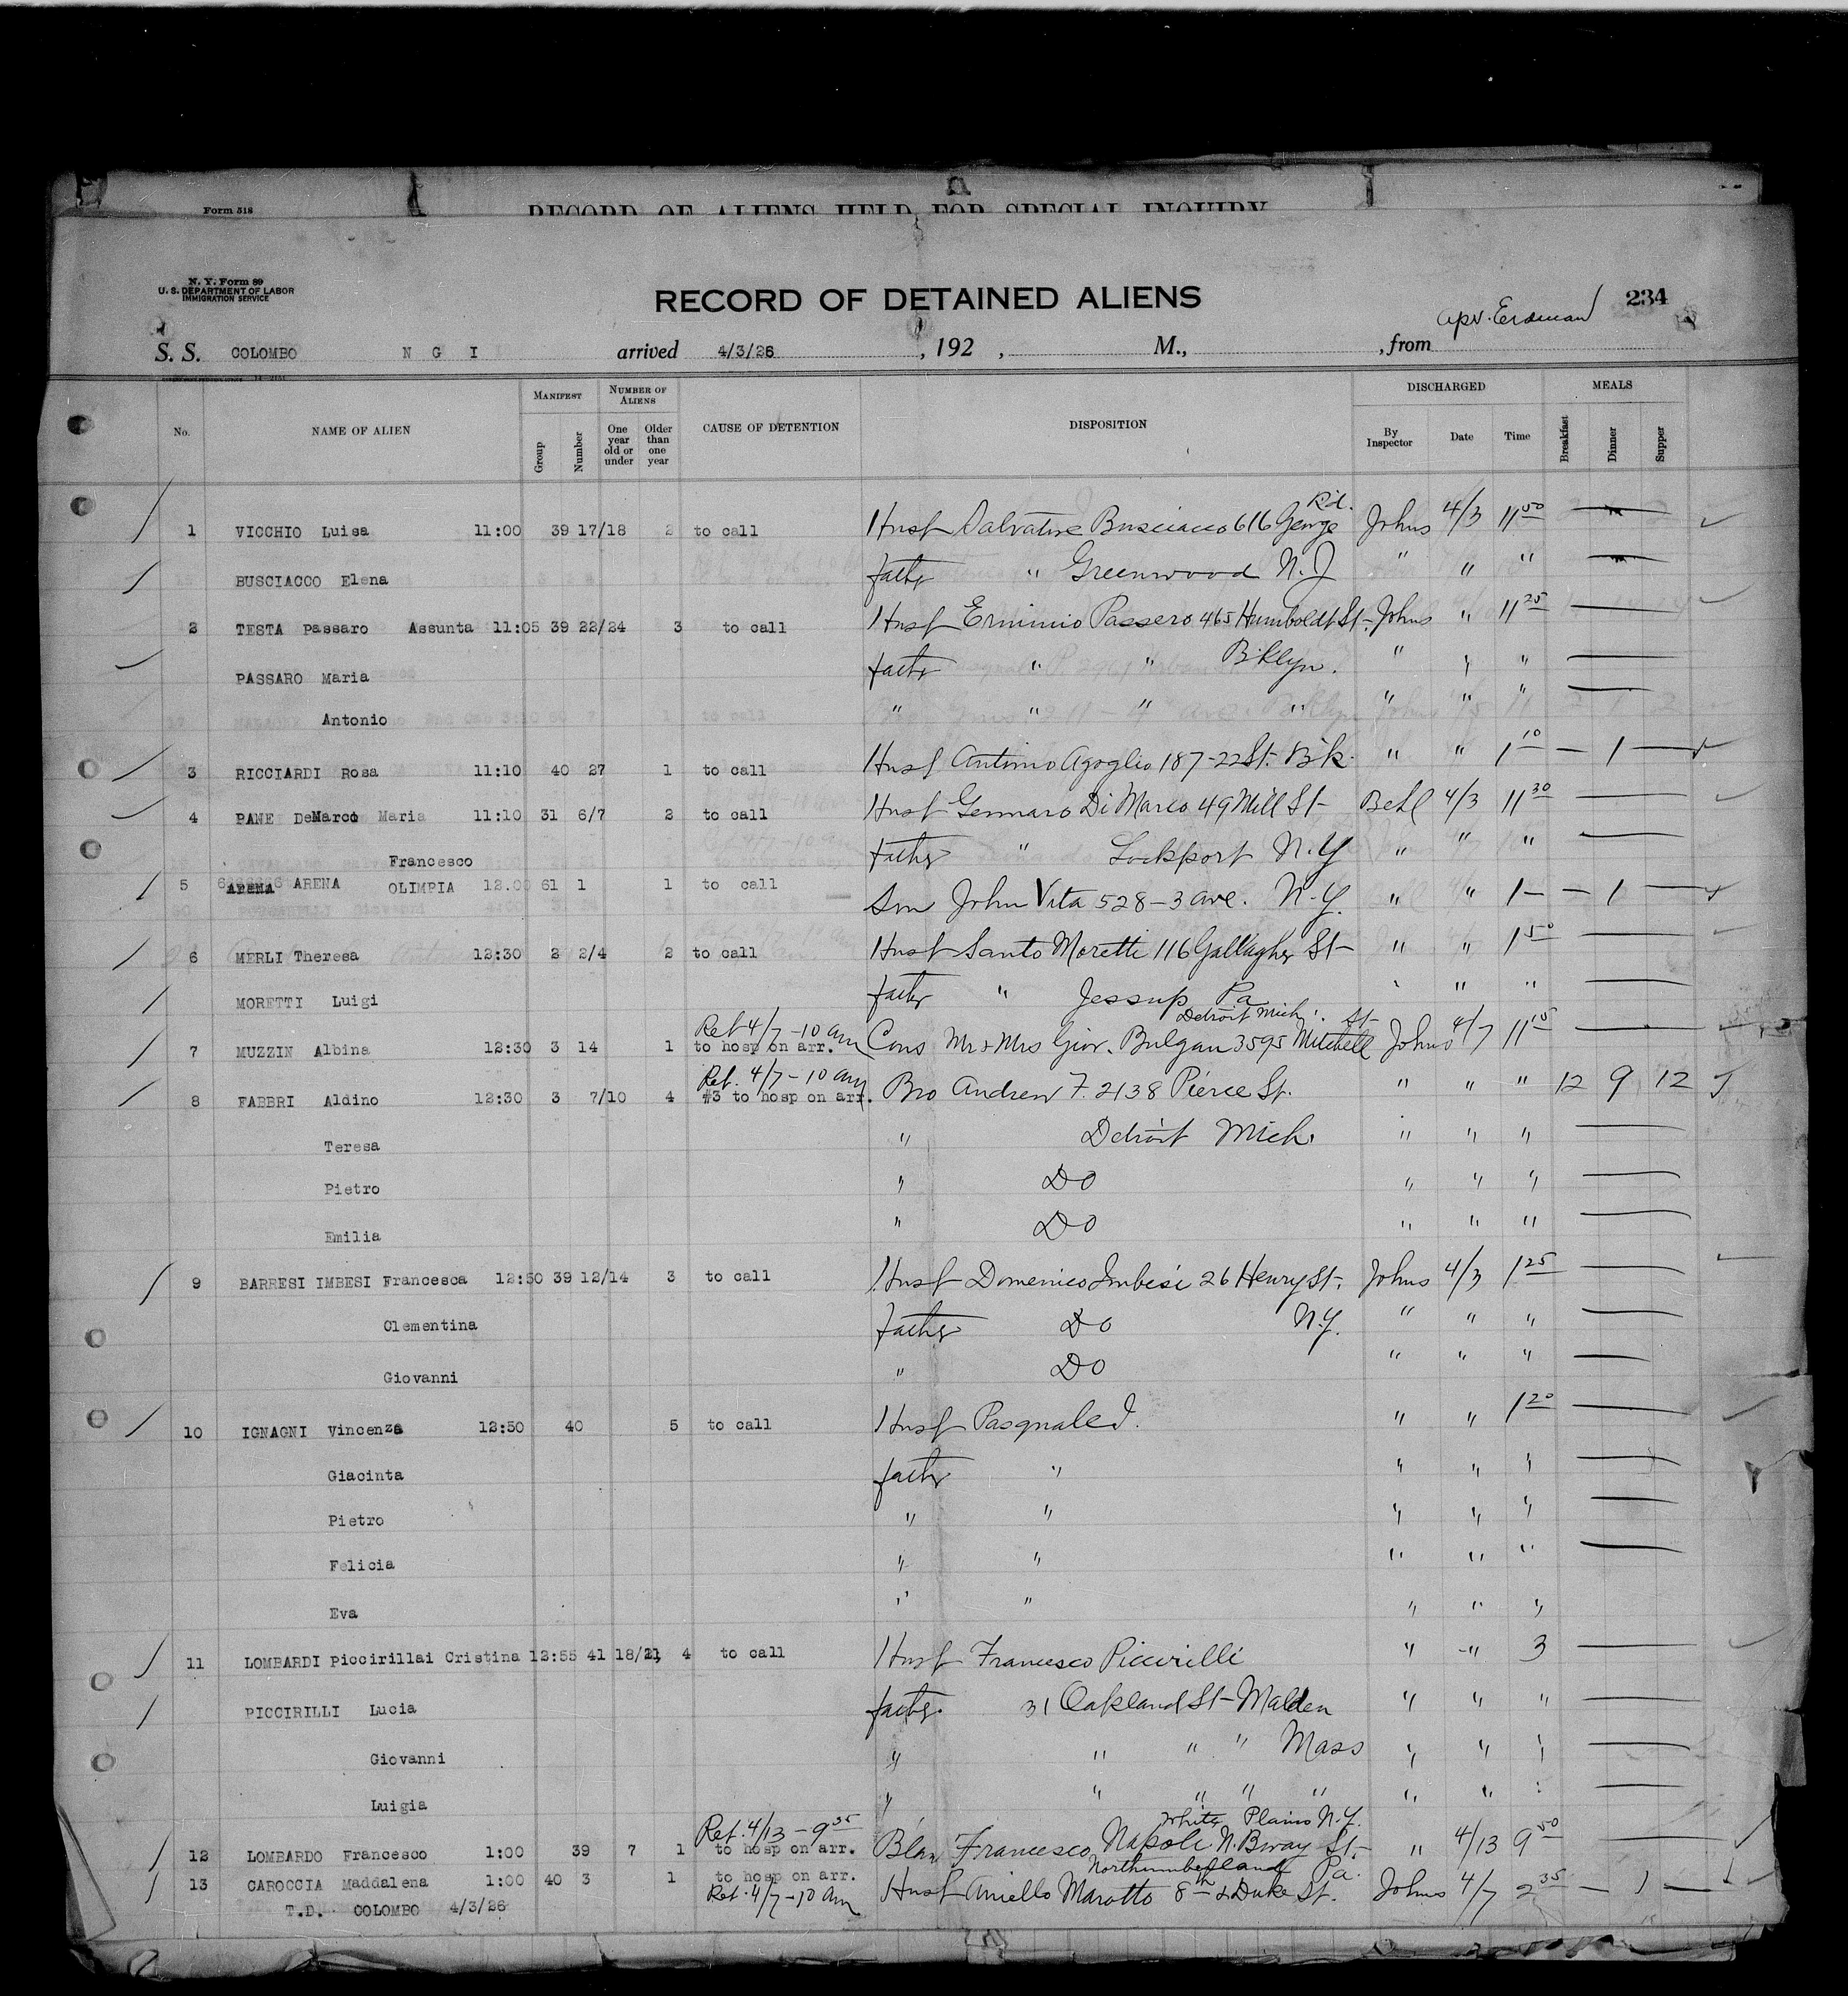 Form 518
RECORD OF ALIENS HELD FOR SPECIAL INQUIRY
N. Y. Form 89
U. S. DEPARTMENT OF LABOR
IMMIGRATION SERVICE
RECORD OF DETAINED ALIENS
234
S. S. COLOMBO N G I arrived 4/3/26, 192 , M., , from
MANIFEST NUMBER OF ALIENS DISCHARGED MEALS
No. NAME OF ALIEN Group Number One year old or under Older than one year CAUSE OF DETENTION DISPOSITION By Inspector Date Time Breakfast Dinner Supper
Rd.
1 VICCHIO Luisa 11:00 39 17/18 2 to call Husb Salvatore Busciacco 616 George Johns 4/3 11 50 —
BUSCIACCO Elena father " Greenwood N.J " " " —
2 TESTA Passaro Assunta 11:05 39 22/24 3 to call Husb Erminio Passero 465 Humboldt St- Johns " 11 25 —
PASSARO Maria father " " Bklyn. " " " —
Antonio " " " " " " " —
3 RICCIARDI Rosa 11:10 40 27 1 to call Husb Antimo Agoglio 187-22 St. Bk. " " 1 10 — 1 —
4 PANE DeMarco Maria 11:10 31 6/7 2 to call Husb Gennaro Di Marco 49 Mill St- Behl 4/3 11 30 —
Francesco father " Lockport N.Y " " " —
5 ARENA OLIMPIA 12.00 61 1 1 to call Son John Vita 528-3 ave. N.Y. " " 1— — 1 —
6 MERLI Theresa 12:30 2 2/4 2 to call Husb Santo Moretti 116 Gallagher St- " " 1 50 —
MORETTI Luigi father " Jessup Pa " " " —
Ret 4/7-10 am Detroit Mich. St-
7 MUZZIN Albina 12:30 3 14 1 to hosp on arr. Cons Mr & Mrs Giov. Bulgan 3595 Mitchell Johns 4/7 11 15 —
Ret. 4/7-10 am
8 FABBRI Aldino 12:30 3 7/10 4 #3 to hosp on arr. Bro Andrew F. 2138 Pierce St. " " " 12 9 12
Teresa " Detroit Mich. " " " —
Pietro " DO " " " —
Emilia " DO " " " —
9 BARRESI IMBESI Francesca 12:50 39 12/14 3 to call Husb Domenico Imbesi 26 Henry St. Johns 4/3 1 25 —
Clementina father DO N.Y. " " " —
Giovanni " DO " " " —
10 IGNAGNI Vincenza 12:50 40 5 to call Husb Pasquale I. " " 1 20 —
Giacinta father " " " " —
Pietro " " " " " —
Felicia " " " " " —
Eva " " " " "
11 LOMBARDI Piccirillai Cristina 12:55 41 18/21, 4 to call Husb Francesco Piccirilli " " 3 —
PICCIRILLI Lucia father. 31 Oakland St- Malden " " " —
Giovanni " " " " Mass " " " —
Luigia " " " " " " " " —
Ret. 4/13-9 35 White Plains N.Y.
12 LOMBARDO Francesco 1:00 39 7 1 to hosp on arr. Francesco Napoli N. Bway St- " 4/13 9 50 —
Northumberland Pa.
13 CAROCCIA Maddalena 1:00 40 3 1 to hosp on arr. Husb Aniello Marotto 8th & Duke St. Johns 4/7 2 35 — 1 —
Ret. 4/7-10 am
T.D. COLOMBO 4/3/26